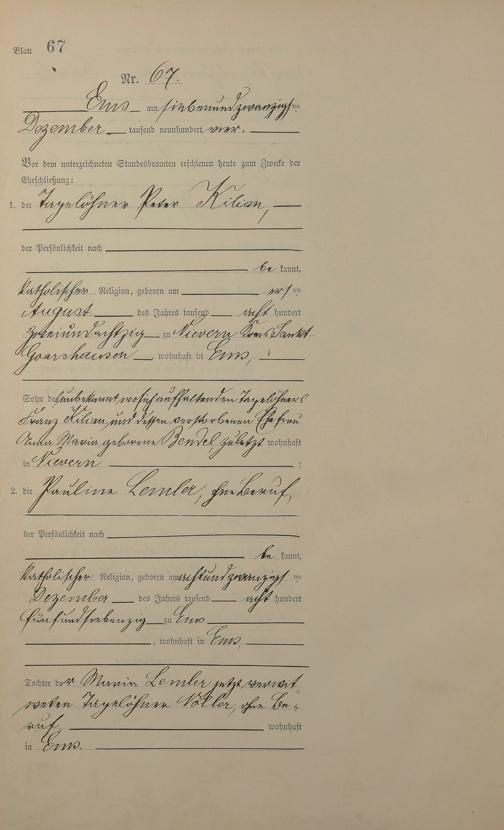 Blatt 67
Nr. 67.
Ems am siebenundzwanzigsten
Dezember tausend neunhundert vier.
Vor dem unterzeichneten Standesbeamten erschienen heute zum Zwecke der
Eheschließung:
1. der Tagelöhner Peter Kilian,
der Persönlichkeit nach
be kannt,
katholischer Religion, geboren am ersten
August des Jahres tausend acht hundert
zweiundachtzig zu Nievern Kreis Sankt
Goarshausen, wohnhaft in Ems,
Sohn des unbekannt wo sich aufhaltenden Tagelöhners
Franz Kilian und dessen verstorbenen Ehefrau
Anna Maria geborene Bendel zuletzt wohnhaft
in Nievern ;
2. die Pauline Lemler, ohne Beruf,
der Persönlichkeit nach
be kannt,
katholischer Religion, geboren am achtundzwanzigsten
Dezember des Jahres tausend acht hundert
fünfundsiebenzig zu Ems
, wohnhaft in Ems,
Tochter der Maria Lemler jetzt verwit
weten Tagelöhner Nöller, ohne Be-
ruf, wohnhaft
in Ems.